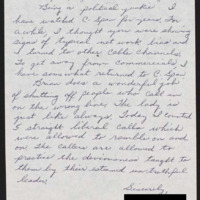 Being a political junkie I
have watched C-Span for years. For
awhile, I thought you were showing
signs of typical net work bias and
I turned to other Cable Channels.
To get away from commercials, I
have somewhat returned to C-Span.
Brian does a wonderful job
of shutting off people who call in
on the wrong line. The lady is
just like always. Today I counted
5 straight liberal calls which
were allowed to ramble on and
on. The callers are allowed to
practice the deviousness taught to
them by their esteemed un-truthful
leader.
Sincerely,